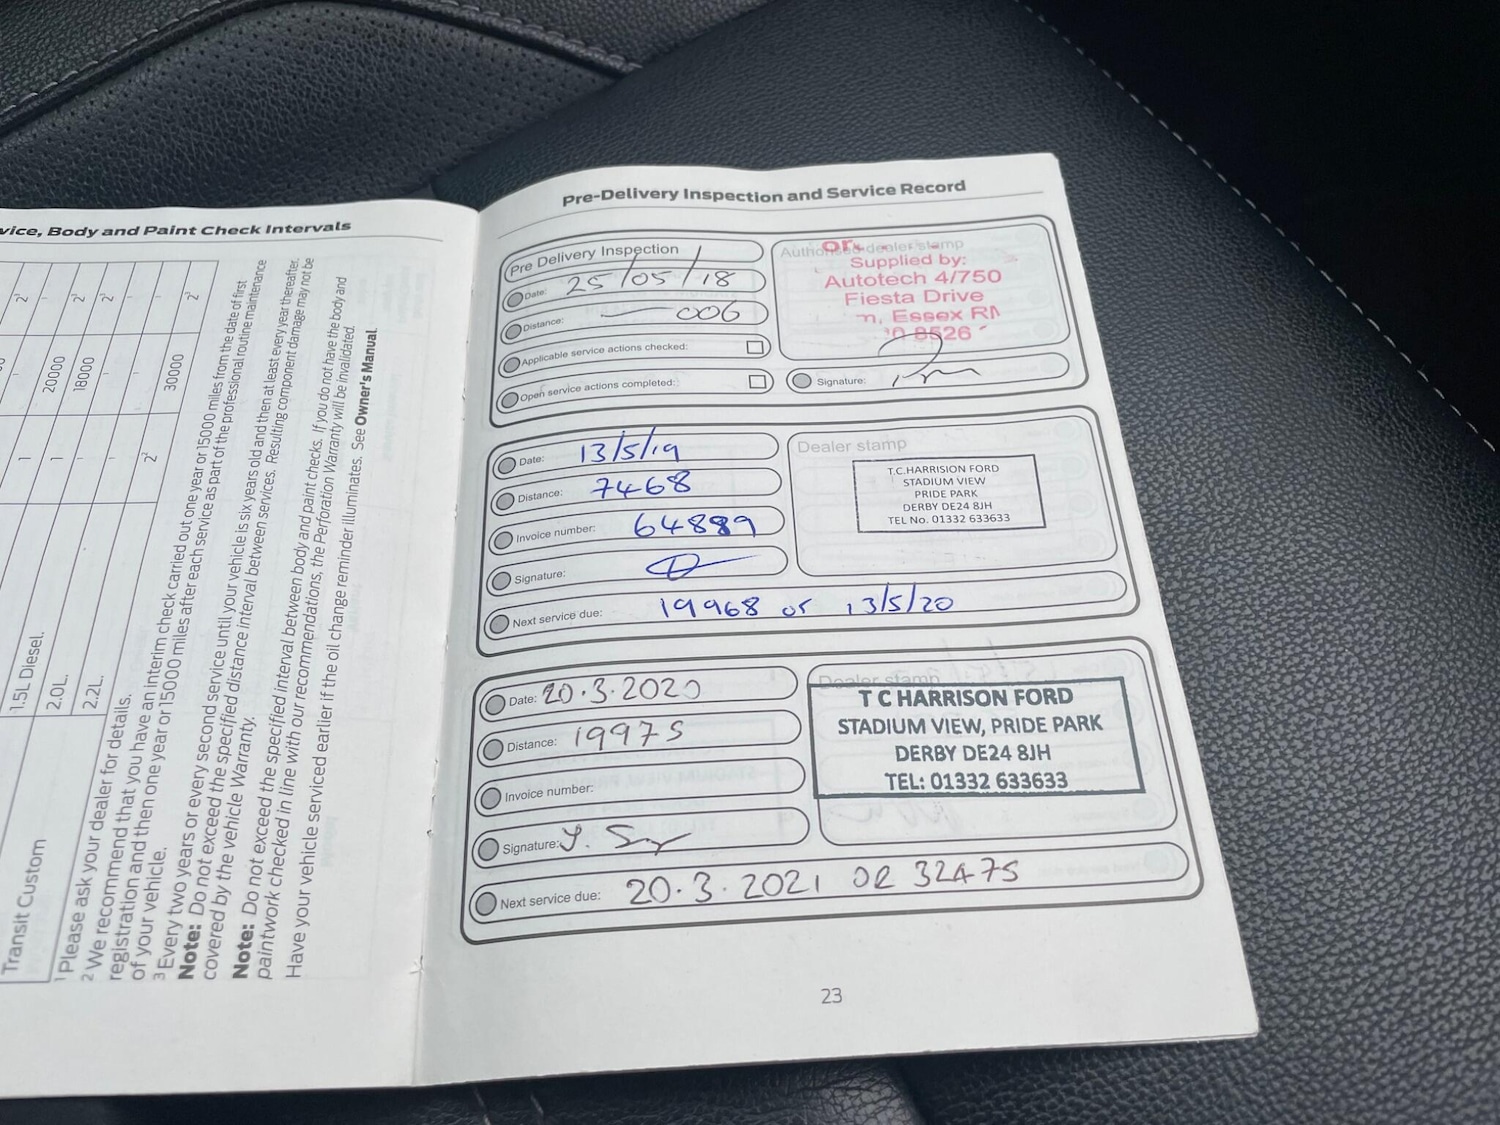 vice, Body and Paint Check Intervals
Transit Custom
1.5L Diesel.
1
-
2¹
2.0L.
1
20000
-
2.2L.
-
18000
2¹
-
-
2¹
2²
-
-
30000
2¹
¹ Please ask your dealer for details.
² We recommend that you have an interim check carried out one year or 15000 miles from the date of first
registration and then one year or 15000 miles after each service as part of the professional routine maintenance
of your vehicle.
³ Every two years or every second service until your vehicle is six years old and then at least every year thereafter.
Note: Do not exceed the specified distance interval between services. Resulting component damage may not be
covered by the vehicle Warranty.
Note: Do not exceed the specified interval between body and paint checks. If you do not have the body and
paintwork checked in line with our recommendations, the Perforation Warranty will be invalidated.
Have your vehicle serviced earlier if the oil change reminder illuminates. See Owner's Manual.
Pre-Delivery Inspection and Service Record
Pre Delivery Inspection
Date: 25/05/18
Distance: 006
Applicable service actions checked:
Open service actions completed:
Authorised dealer stamp
Supplied by:
Autotech 4/750
Fiesta Drive
Essex
Signature:
Date: 13/5/19
Distance: 7468
Invoice number: 64889
Signature:
Next service due: 19968 or 13/5/20
Dealer stamp
T.C.HARRISION FORD
STADIUM VIEW
PRIDE PARK
DERBY DE24 8JH
TEL No. 01332 633633
Date: 20.3.2020
Distance: 19975
Invoice number:
Signature:
Next service due: 20.3.2021 OR 32475
Dealer stamp
T C HARRISON FORD
STADIUM VIEW, PRIDE PARK
DERBY DE24 8JH
TEL: 01332 633633
23